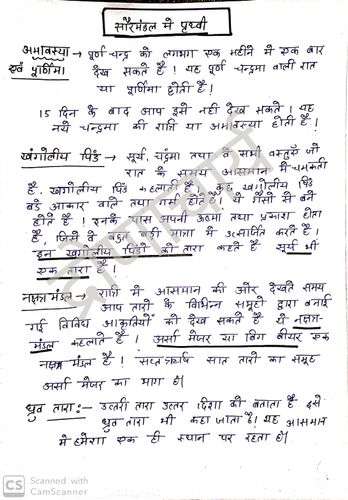 सौरमंडल मे पृथ्वी
अमावस्या → पूर्ण चन्द्र को लगभग एक महीने में एक बार
एवं पूर्णिमा देख सकते है ! यह पूर्ण चन्द्रमा वाली रात
या पूर्णिमा होती है !
15 दिन के बाद आप इसे नही देख सकते ! यह
नये चन्द्रमा की रात्रि या अमावस्या होती है !
खगोलीय पिंड → सूर्य, चंद्रमा तथा वे सभी वस्तुएँ जो
रात के समय आसमान में चमकती
है, खगोलीय पिंड कहलाती है ! कुछ खगोलीय पिंड
बड़े आकार वाले तथा गर्म होते है ! ये गैसो से बने
होते है ! इनके पास अपनी ऊष्मा तथा प्रकाश होता
है, जिसे वे बहुत बड़ी मात्रा में उत्सर्जित करते है !
इन खगोलीय पिंडो को तारा कहते है सूर्य भी
एक तारा है !
नक्षत्र मंडल → रात्रि में आसमान की ओर देखते समय
आप तारो के विभिन्न समूहो द्वारा बनाई
गई विविध आकृतियों को देख सकते है ये नक्षत्र-
मंडल कहलाते है ! अर्सा मेजर या बिग बीयर एक
नक्षत्र मंडल है ! सप्तऋषि सात तारो का समूह
अर्सा मेजर का भाग है।
ध्रुव तारा :- उत्तरी तारा उत्तर दिशा को बताता है इसे
ध्रुव तारा भी कहा जाता है ! यह आसमान
मे हमेशा एक ही स्थान पर रहता है।
CS Scanned with
CamScanner